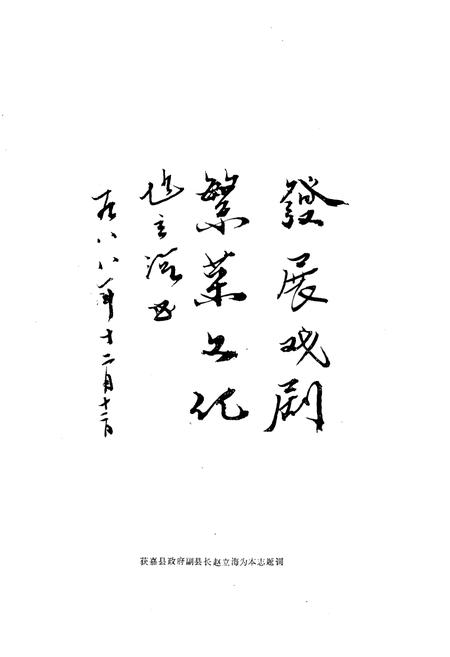 發展戏剧
繁荣文化
赵立海书
一九八八年十二月十二日
获嘉县政府副县长赵立海为本志题训